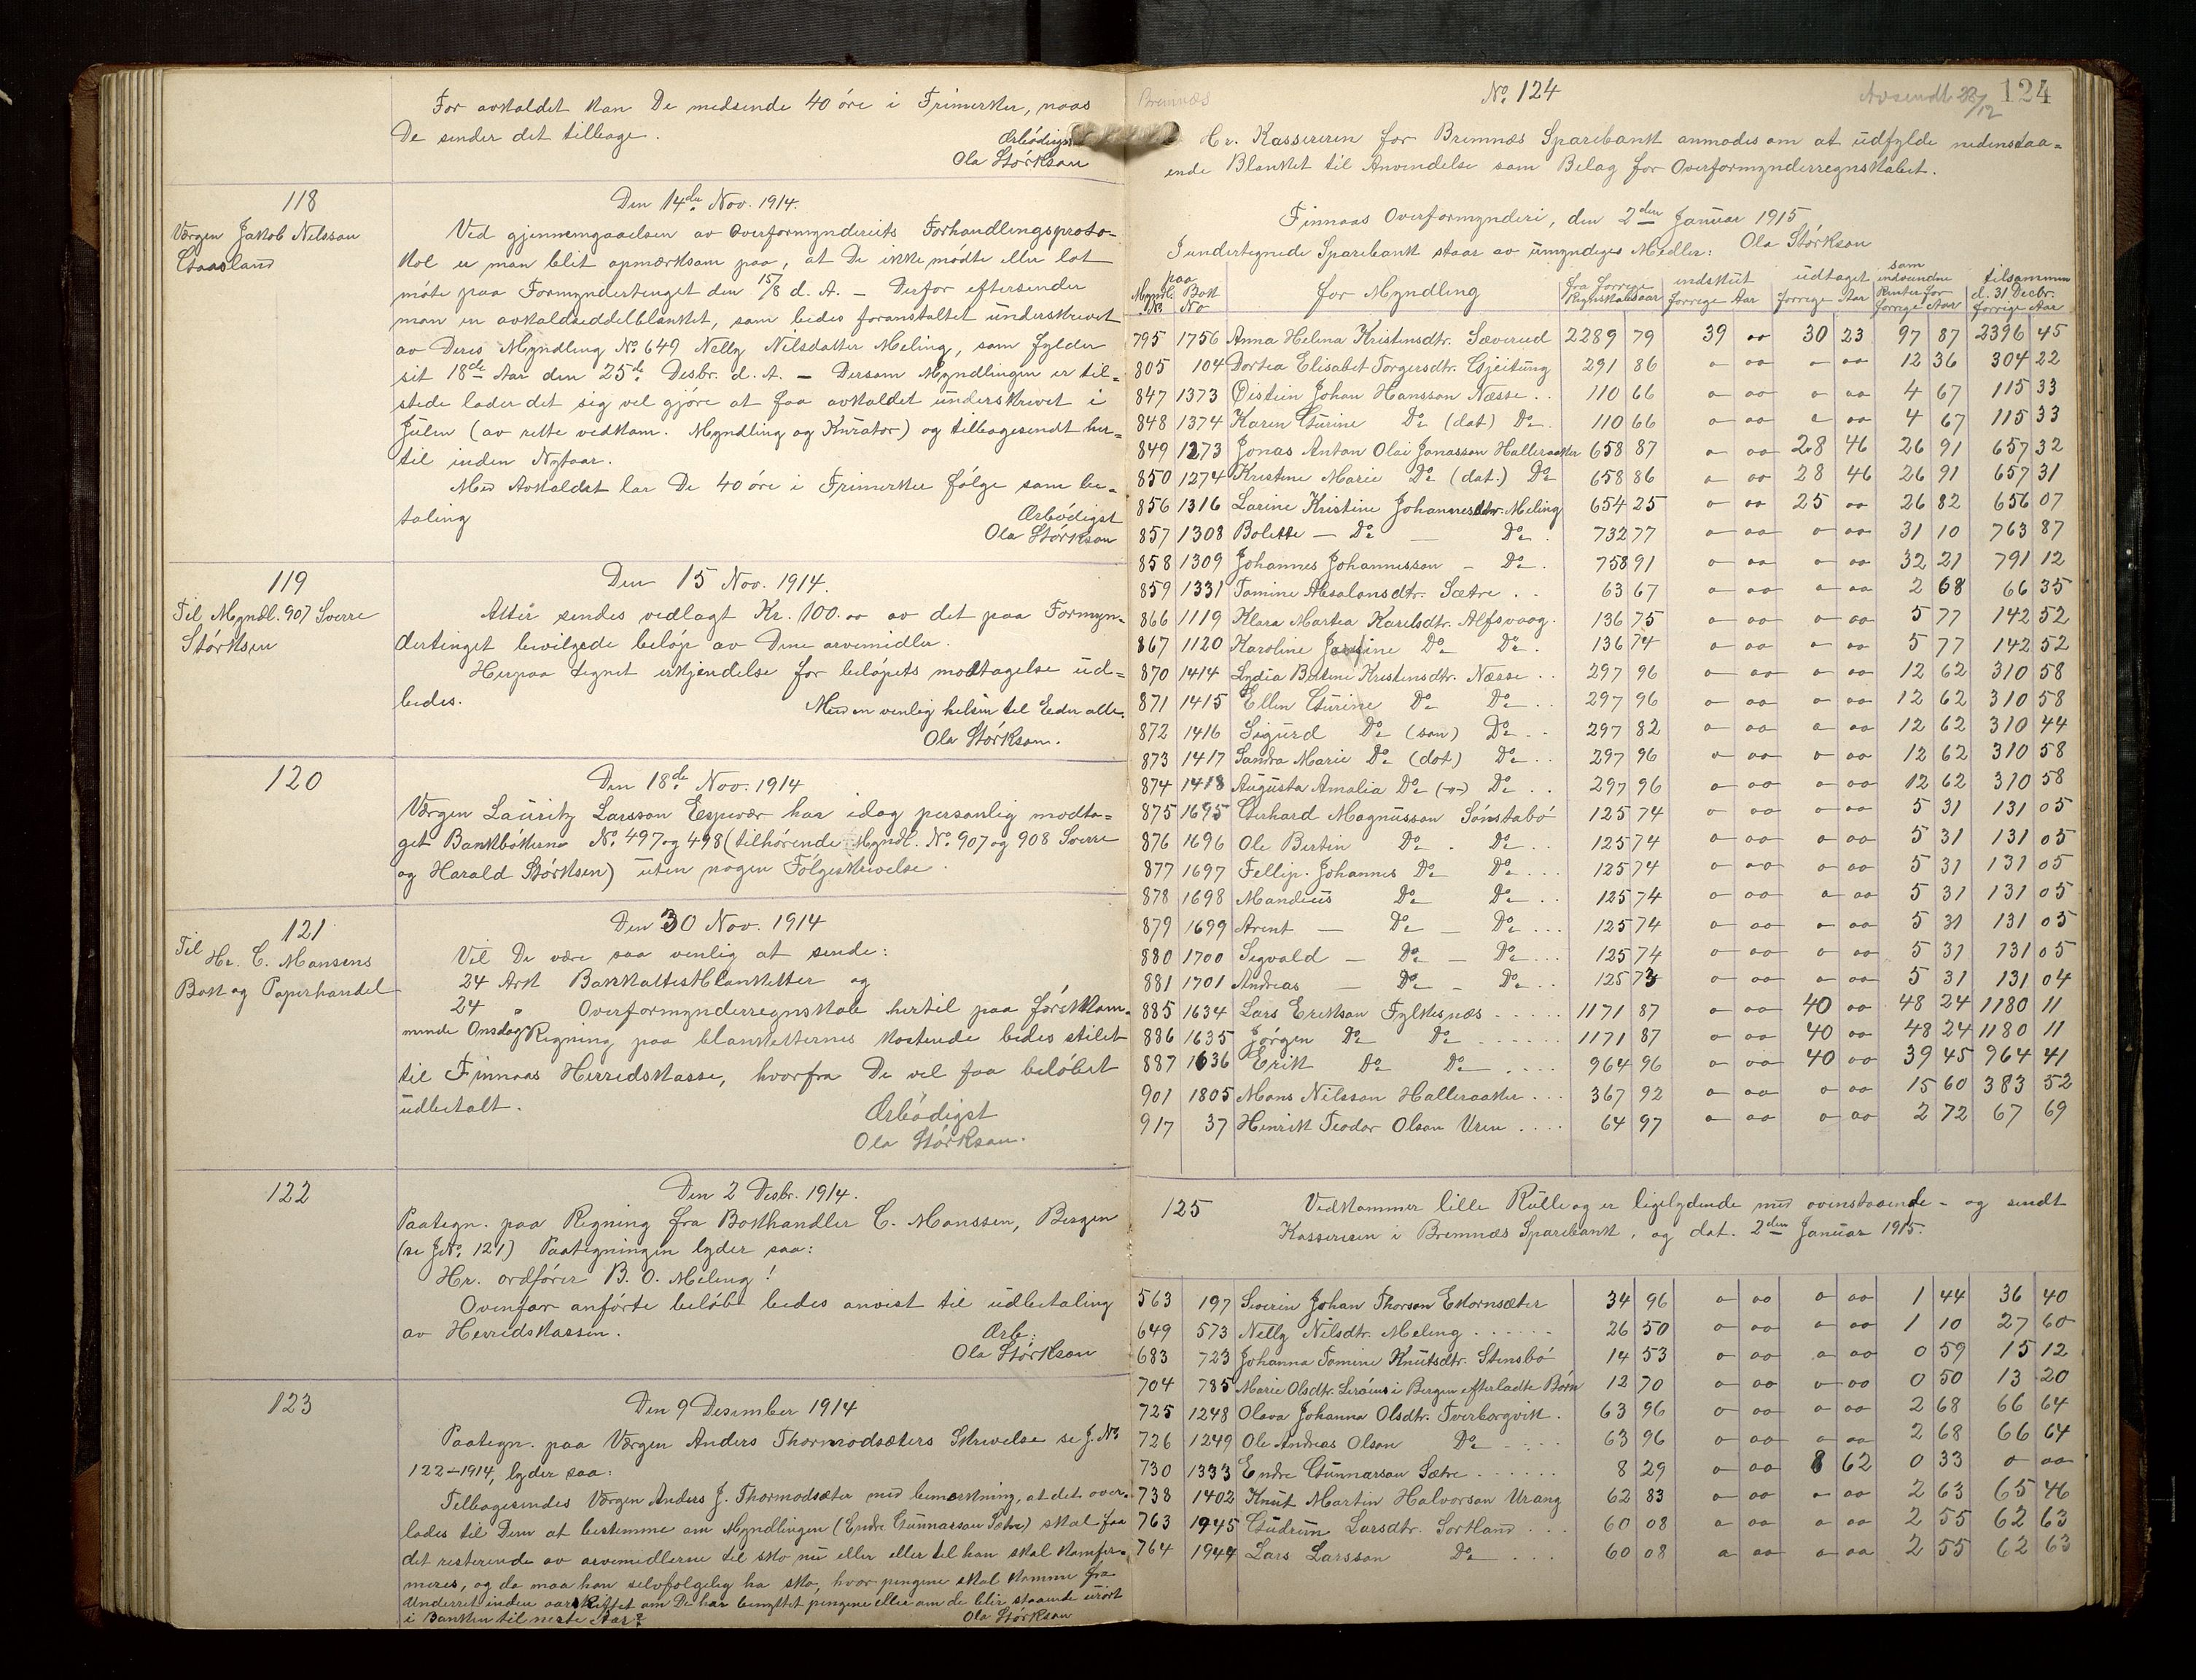 For avkaldet kan De medsende 40 öre i Frimerker, naar
De sender det tilbage.
Ærbödigst
Ola Störkson
118
Værgen Jakob Nilsson
Gaasland
Den 14de Nov. 1914.
Ved gjennemgaaelsen av Overformynderiets Forhandlingsproto-
kol er man blit opmærksom paa, at De ikke mödte eller lot
möte paa Formyndertinget den 15/8 d. A. — Derfor eftersender
man en avkaldseddelblanket, som bedes foranstaltet underskrevet
av Deres Myndling No. 649 Nelly Nilsdatter Meling, som fylder
sit 18de Aar den 25de Desbr. d. A. — Dersom Myndlingen er til-
stede lader det sig vel gjöre at faa avkaldet underskrevet i
Julen (av rette vedkom. Myndling og Kurator) og tilbagesendt her-
til inden Nytaar.
Med Avkaldet lar De 40 öre i Frimerker fölge som be-
taling
Ærbödigst
Ola Störkson
119
Til Myndl. 907 Sverre
Störksen
Den 15 Nov. 1914.
Atter sendes vedlagt Kr. 100.00 av det paa Formyn-
dertinget bevilgede belöp av Dine arvemidler.
Herpaa tegnet erkjendelse for belöpets modtagelse ud-
bedes.
Med en venlig hilsen til Eder alle.
Ola Störkson.
120
Den 18de Nov. 1914
Værgen Lauritz Larsson Espevær har idag personlig modta-
get Bankbökerne No. 497 og 498 (tilhörende Myndl. No. 907 og 908 Sverre
og Harald Störksen) uten nogen Fölgeskrivelse.
121
Til Hr. C. Mansens
Bok og Papirhandel
Den 30 Nov. 1914
Vil De være saa venlig at sende:
24 Ark Bankattestblanketter og
24 " Overformynderregnskab hertil paa förstkom-
mende Onsdag. Regning paa blanketternes kostende bedes stilet
til Finnaas Herredskasse, hvorfra De vil faa belöbet
udbetalt.
Ærbödigst
Ola Störkson.
122
Den 2 Desbr. 1914.
Paategn. paa Regning fra Bokhandler C. Monssen, Bergen
(se J.No. 121) Paategningen lyder saa:
Hr. ordförer B. O. Meling!
Ovenfor anförte belöb bedes anvist til udbetaling
av Herredskassen.
Ærb:
Ola Störkson
123
Den 9 Desember 1914
Paategn. paa Værgen Anders Thormodsæters Skrivelse se J. No.
122-1914, lyder saa:
Tilbagesendes Værgen Anders J. Thormodsæter med bemerkning, at det over-
lades til Dem at bestemme om Myndlingen (Endre Gunnarson Sætre) skal faa
det resterende av arvemidlerne til sko nu eller eller til han skal konfir-
meres, og da maa han selvfolgelig ha sko, hvor pengene skal komme fra
Underret inden aarskiftet om De har benyttet pengene eller om de blir staaende urört
i Banken til neste Aar?
Ola Störkson
Bremnes
No. 124
Avsendt 28/12
124
Hr. Kassereren for Bremnæs Sparebank anmodes om at udfylde nedenstaa-
ende Blanket til Anvendelse som Belag for Overformynderregnskabet.
Finnaas Overformynderi, den 2den Januar 1915
Ola Störkson
I undertegnede Sparebank staar av umyndiges Midler:
Myndl. No. | paa Bok No | for Myndling | fra forrige Regnskabsaar | indskut forrige Aar | udtaget forrige Aar | som indvundne Renter for forrige Aar | tilsammen d. 31 Decbr. forrige Aar
795 1756 Anna Helena Kristensdtr. Sæverud 2289 79 39 00 30 23 97 87 2396 45
805 104 Dortea Elisabet Torgersdtr. Gjeitung 291 86 0 00 0 00 12 36 304 22
847 1373 Öistein Johan Hansson Næsse . . 110 66 0 00 0 00 4 67 115 33
848 1374 Karen Gurine Do (dat) Do. 110 66 0 00 0 00 4 67 115 33
849 1273 Jonas Anton Olai Jonasson Halleraaker 658 87 0 00 28 46 26 91 657 32
850 1274 Kristine Marie Do (dat.) Do 658 86 0 00 28 46 26 91 657 31
856 1316 Larine Kristine Johannesdtr. Meling 654 25 0 00 25 00 26 82 656 07
857 1308 Bolette — Do — Do. 732 77 0 00 0 00 31 10 763 87
858 1309 Johannes Johannesson - Do. 758 91 0 00 0 00 32 21 791 12
859 1331 Tomine Absalonsdtr. Sætre . . 63 67 0 00 0 00 2 68 66 35
866 1119 Klara Martea Karlsdtr. Alfsvaag. 136 75 0 00 0 00 5 77 142 52
867 1120 Karoline Do Do. 136 74 0 00 0 00 5 77 142 52
870 1414 Lydia Bertine Kristensdtr. Næsse . . 297 96 0 00 0 00 12 62 310 58
871 1415 Ellen Gurine Do Do . . 297 96 0 00 0 00 12 62 310 58
872 1416 Sigurd Do (son) Do . . 297 82 0 00 0 00 12 62 310 44
873 1417 Sandra Marie Do (dat) Do . . 297 96 0 00 0 00 12 62 310 58
874 1418 Augusta Amalia Do (-"-) Do . . 297 96 0 00 0 00 12 62 310 58
875 1695 Gerhard Magnusson Sönstabö 125 74 0 00 0 00 5 31 131 05
876 1696 Ole Bertin Do . Do . . 125 74 0 00 0 00 5 31 131 05
877 1697 Fellip. Johannes Do Do . . . 125 74 0 00 0 00 5 31 131 05
878 1698 Mandius Do Do . . 125 74 0 00 0 00 5 31 131 05
879 1699 Arent — Do — Do . . . 125 74 0 00 0 00 5 31 131 05
880 1700 Sigvald — Do — Do . . . 125 74 0 00 0 00 5 31 131 05
881 1701 Andreas — Do - Do . . 125 73 0 00 0 00 5 31 131 04
885 1634 Lars Erikson Fylkesnæs . . . . . 1171 87 0 00 40 00 48 24 1180 11
886 1635 Jörgen Do Do . . . . . . 1171 87 0 00 40 00 48 24 1180 11
887 1636 Erik Do Do . . . . 964 96 0 00 40 00 39 45 964 41
901 1805 Mons Nilsson Halleraaker . . . 367 92 0 00 0 00 15 60 383 52
917 37 Henrik Teodor Olson Uren . . . . 64 97 0 00 0 00 2 72 67 69
125
Vedkommer lille Rulle og er ligelydende med ovenstaaende - og sendt
Kassereren i Bremnæs Sparebank, og dat. 2den Januar 1915.
563 197 Severin Johan Thorson Ekornsæter 34 96 0 00 0 00 1 44 36 40
649 573 Nelly Nilsdtr. Meling . . . . . . 26 50 0 00 0 00 1 10 27 60
683 723 Johanna Tomine Knutsdtr. Stensbö 14 53 0 00 0 00 0 59 15 12
704 785 Marie Olsdtr. i Bergen efterladte Börn 12 70 0 00 0 00 0 50 13 20
725 1248 Olava Johanna Olsdtr. Tverborgvik . 63 96 0 00 0 00 2 68 66 64
726 1249 Ole Andreas Olson Do . . . . 63 96 0 00 0 00 2 68 66 64
730 1333 Endre Gunnarson Sætre . . . . . . 8 29 0 00 8 62 0 33 0 00
738 1402 Knut Martin Halvorson Urang 62 83 0 00 0 00 2 63 65 46
763 1945 Gudrun Larsdtr. Sortland . . . 60 08 0 00 0 00 2 55 62 63
764 1944 Lars Larsson Do . . . 60 08 0 00 0 00 2 55 62 63